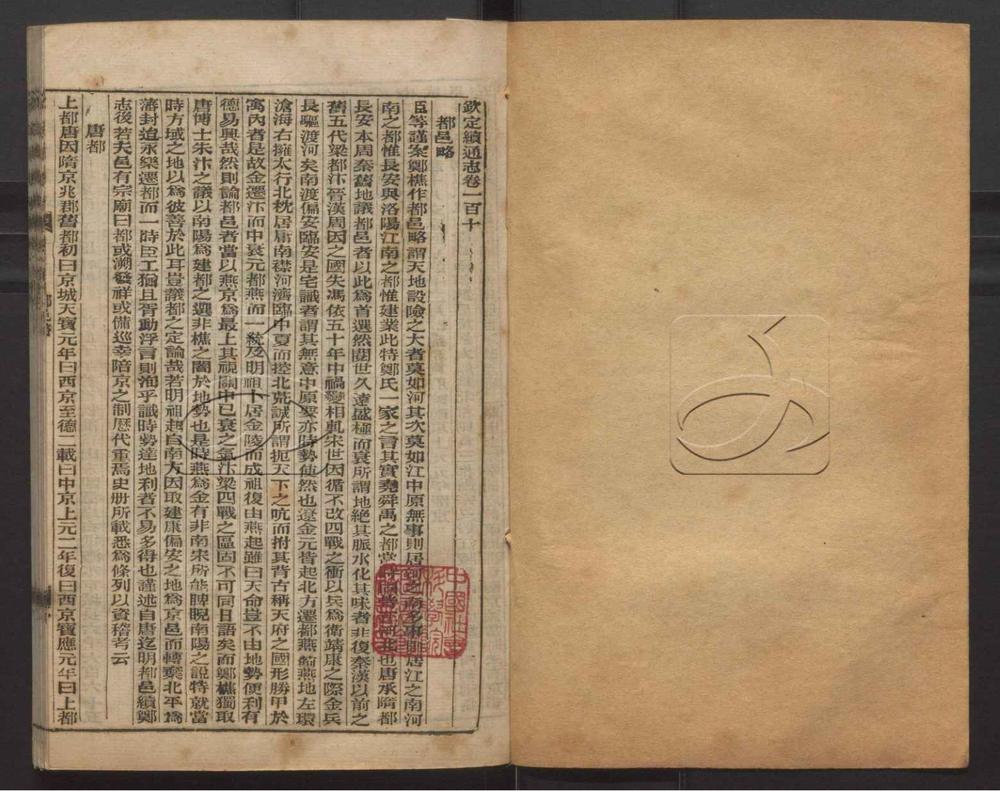 欽定續通志卷一百十
都邑略
臣等謹案鄭樵作都邑略謂天地設險之大者莫如河其次莫如江中原無事則居河之南多事則居江之南河
南之都惟長安與洛陽江南之都惟建業此特鄭氏一家之言其實堯舜禹之都也唐承隋都
長安本周秦舊地議都邑者以此爲首選然閱世久遠盛極而衰所謂地絕其脈水化其味者非復秦漢以前之
舊五代梁都汴晉漢周因之國失馮依五十年中禍變相軋宋世因循不改四戰之衝以兵爲衛靖康之際金兵
長驅渡河矣南渡偏安臨安是宅識者謂其無意中原要亦時勢使然也遼金元皆起北方遷都燕薊燕地左環
滄海右擁太行北枕居庸南襟河濟臨中夏而控北荒誠所謂扼天下之吭而拊其背古稱天府之國形勝甲於
寓內者是故金遷汴而中衰元都燕而一統及明祖卜居金陵而成祖復由燕起雖曰天命豈不由地勢便利有
德易興哉然則論都邑者當以燕京爲最上其視關中已衰之氣汴梁四戰之區固不可同日語矣而鄭樵獨取
唐博士朱汴之議以南陽爲建都之選非樵之闇於地勢也是時燕爲金有非南宋所能睥睨南陽之說特就當
時方域之地以爲彼善於此耳豈議都之定論哉若明祖起自南方因取建康偏安之地爲京邑而轉棄北平爲
藩封迨永樂遷都而一時臣工猶且胥動浮言則洵乎識時勢達地利者不易多得也謹述自唐迄明都邑續鄭
志後若夫邑有宗廟曰都或溯發祥或備巡幸陪京之制歷代重焉史册所載悉爲條列以資稽考云
唐都
上都唐因隋京兆郡舊都初曰京城天寶元年曰西京至德二載曰中京上元二年復曰西京寶應元年曰上都